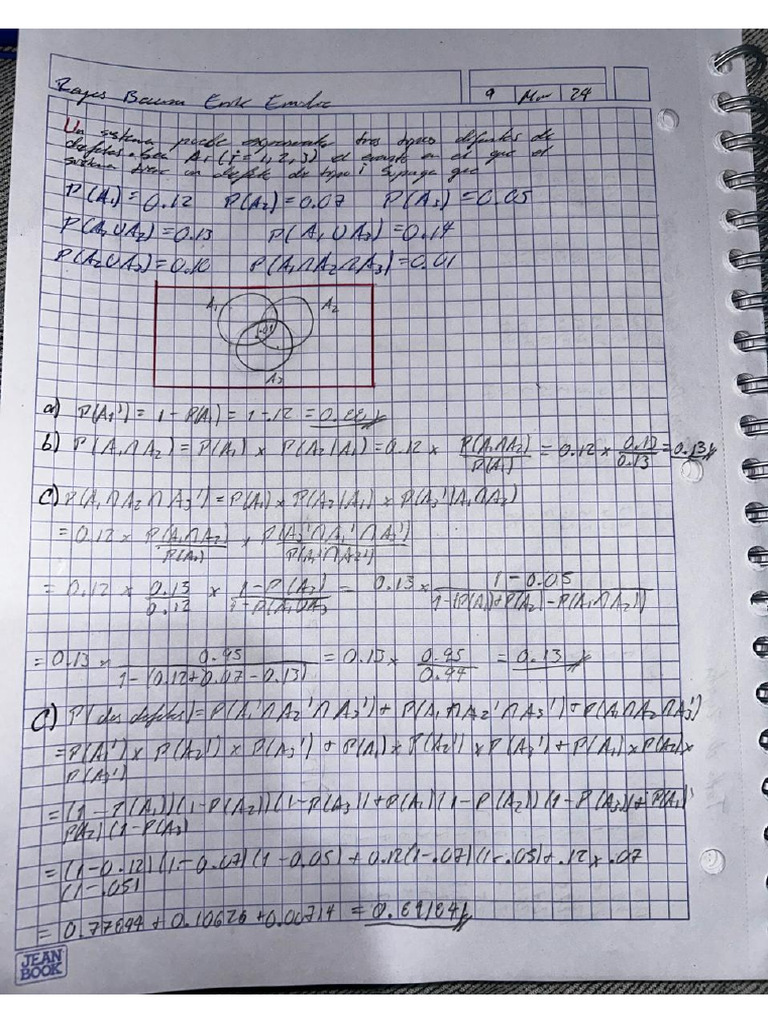 Erik
9 Mar 24
Un sistema puede experimentar tres tipos defectos de
defectos. Sea Ai (i = 1,2,3) el evento en el que el
sistema tiene un defecto de tipo i suponga que
P(A1) = 0.12 P(A2) = 0.07 P(A3) = 0.05
P(A1∪A2) = 0.13 P(A1∪A3) = 0.14
P(A2∪A3) = 0.10 P(A1∩A2∩A3) = 0.01
A1 A2
.01
A3
a) P(A1') = 1 - P(A1) = 1 - .12 = 0.88
b) P(A1∩A2) = P(A1) x P(A2|A1) = 0.12 x P(A1∩A2)/P(A1) = 0.12 x 0.13/0.13 = 0.13
C) P(A1∩A2∩A3') = P(A1) x P(A2|A1) x P(A3'|A1∩A2)
= 0.12 x P(A1∩A2)/P(A1) x P(A3'∩A1'∩A3')/P(A1'∩A2')
= 0.12 x 0.13/0.12 x 1-P(A3)/1-P(A1∪A3 = 0.13 x 1-0.05/1-(P(A1)+P(A2)-P(A1∩A2))
= 0.13 x 0.95/1-(0.12+0.07-0.13) = 0.13 x 0.95/0.94 = 0.13
C) P(dos defectos) = P(A1'∩A2'∩A3') + P(A1∩A2'∩A3') + P(A1∩A2∩A3')
= P(A1') x P(A2') x P(A3') + P(A1) x P(A2') x P(A3') + P(A1) x P(A2) x
P(A3')
= (1-P(A1))(1-P(A2))(1-P(A3)) + P(A1)(1-P(A2))(1-P(A3)) + P(A1)
P(A2)(1-P(A3)
= (1-0.12)(1-0.07)(1-0.05) + 0.12(1-.07)(1-.05) + .12 x .07
(1-.05)
= 0.77844 + 0.10626 + 0.00714 = 0.89184
JEAN
BOOK